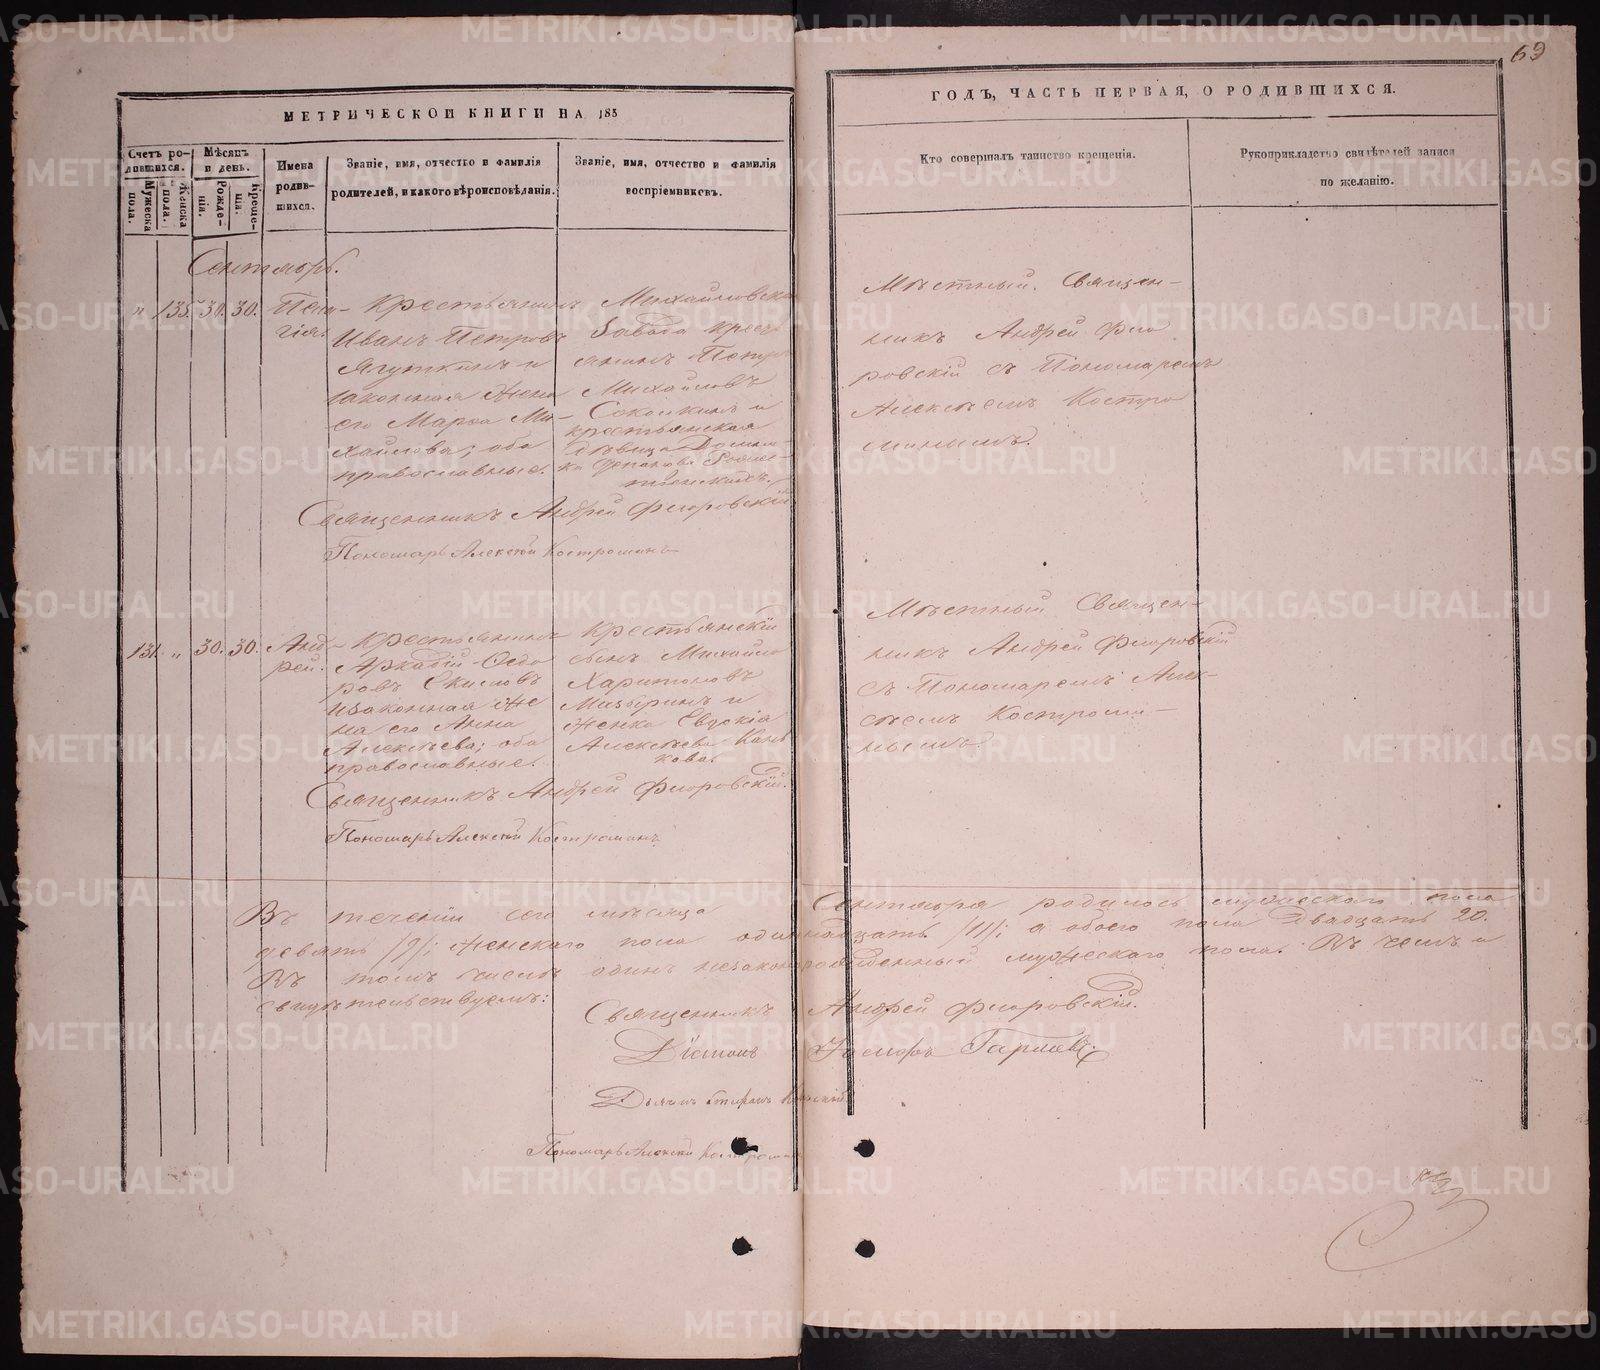 69
МЕТРИЧЕСКОЙ КНИГИ НА 185
ГОДЪ, ЧАСТЬ ПЕРВАЯ, О РОДИВШИХСЯ.
Счетъ родившихся.
Мужеска пола.
Женска пола.
Мѣсяцъ и день.
Рожденія.
Крещенія.
Имена родившихся.
Званіе, имя, отчество и фамилія родителей, и какого вѣроисповѣданія.
Званіе, имя, отчество и фамилія воспріемниковъ.
Кто совершалъ таинство крещенія.
Рукоприкладство свидѣтелей записи по желанію.
Сентябрь.
" 135. 30. 30.
Пела-
гія.
Крестьянинъ
Иванъ Петровъ
Ягуткинъ и
законная жена
его Марѳа Ми-
хайлова; оба
православные.
Михайловска
Завода крест
янинъ Петръ
Михайловъ
Соколкинъ и
крестьянская
дѣвица
Священникъ Андрей Флоровскій
Пономарь Алексѣй Костроминъ
Мѣстный Священ-
никъ Андрей Фло
ровскій съ Пономаремъ
Алексѣемъ Костро
минымъ.
131. " 30. 30.
Анд-
рей.
Крестьянинъ
Аркадій Ѳедо
ровъ
и законная же
на его Анна
Алексѣева; оба
православные.
Крестьянскій
сынъ Михайло
Харитоновъ
и
женка
Алексѣева
Священникъ Андрей Флоровскій.
Пономарь Алексѣй Костроминъ
Мѣстный Священ-
никъ Андрей Флоровскій
съ Пономаремъ Алек-
сѣемъ Костроми-
нымъ.
Въ теченіи сего мѣсяца Сентября родилось мужескаго пола
девять /9/; женскаго пола одиннадцать /11/; а обоего пола двадцать 20.
Въ томъ числѣ одинъ незаконнорожденный мужескаго пола. Въ чемъ и
свидѣтельствуемъ:
Священникъ Андрей Флоровскій.
Діаконъ Іосифъ
Дьячекъ Стефанъ
Пономарь Алексѣй Костроминъ
METRIKI.GASO-URAL.RU